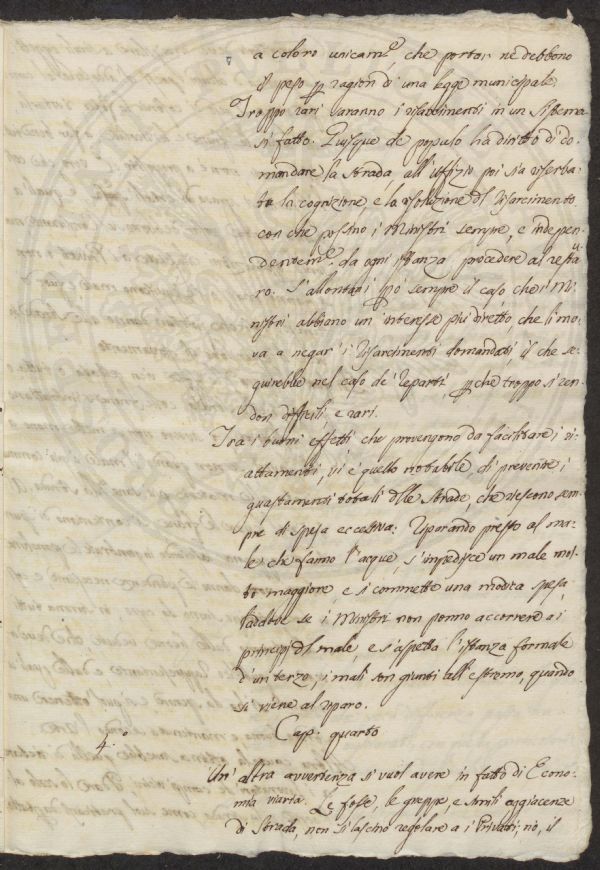 a coloro unicam.e, che portar ne debbono
il peso p ragion di una legge municipale.
Troppo rari saranno i riattamenti in un sistema
si fatto. Quisque de populo ha diritto di co-
mandare la strada, all'Uffizio poi sia riserba-
ta la cognizione, e la risoluzione del risarcimento
con che possino i Ministri sempre, e indepen-
dentem.e da ogni istanza procedere al restau-
ro. S'allontani ppo sempre il caso che i Mi-
nistri abbiano un interesse più diretto, che li mo-
va a negar' i risarcimenti domandati, il che se-
guirebbe nel caso de' reparti, pche troppo si ren-
don difficili, e rari.
Tra i buoni effetti che provengono da facilitare i ri-
attamenti, vi è quello notabile, di prevenire i
guastamenti totali delle strade, che riescono sem-
pre di spesa eccessiva: Riparando presto al ma-
le che fanno l'acque, s'impedisce un male mol-
to maggiore e si commette una modica spesa,
laddove se i Ministri non ponno accorrere ai
principj del male, e s'aspetta l'istanza formale
d'un terzo, i mali son giunti all'estremo, quando
si viene al riparo.
Cap: quarto
4.o
Un' altra avvertenza si vuol avere in fatto di Econo-
mia viaria. Le fosse, le greppe, e simili aggiacenze
di strada, non si lascino regolare a i Privati; no, il